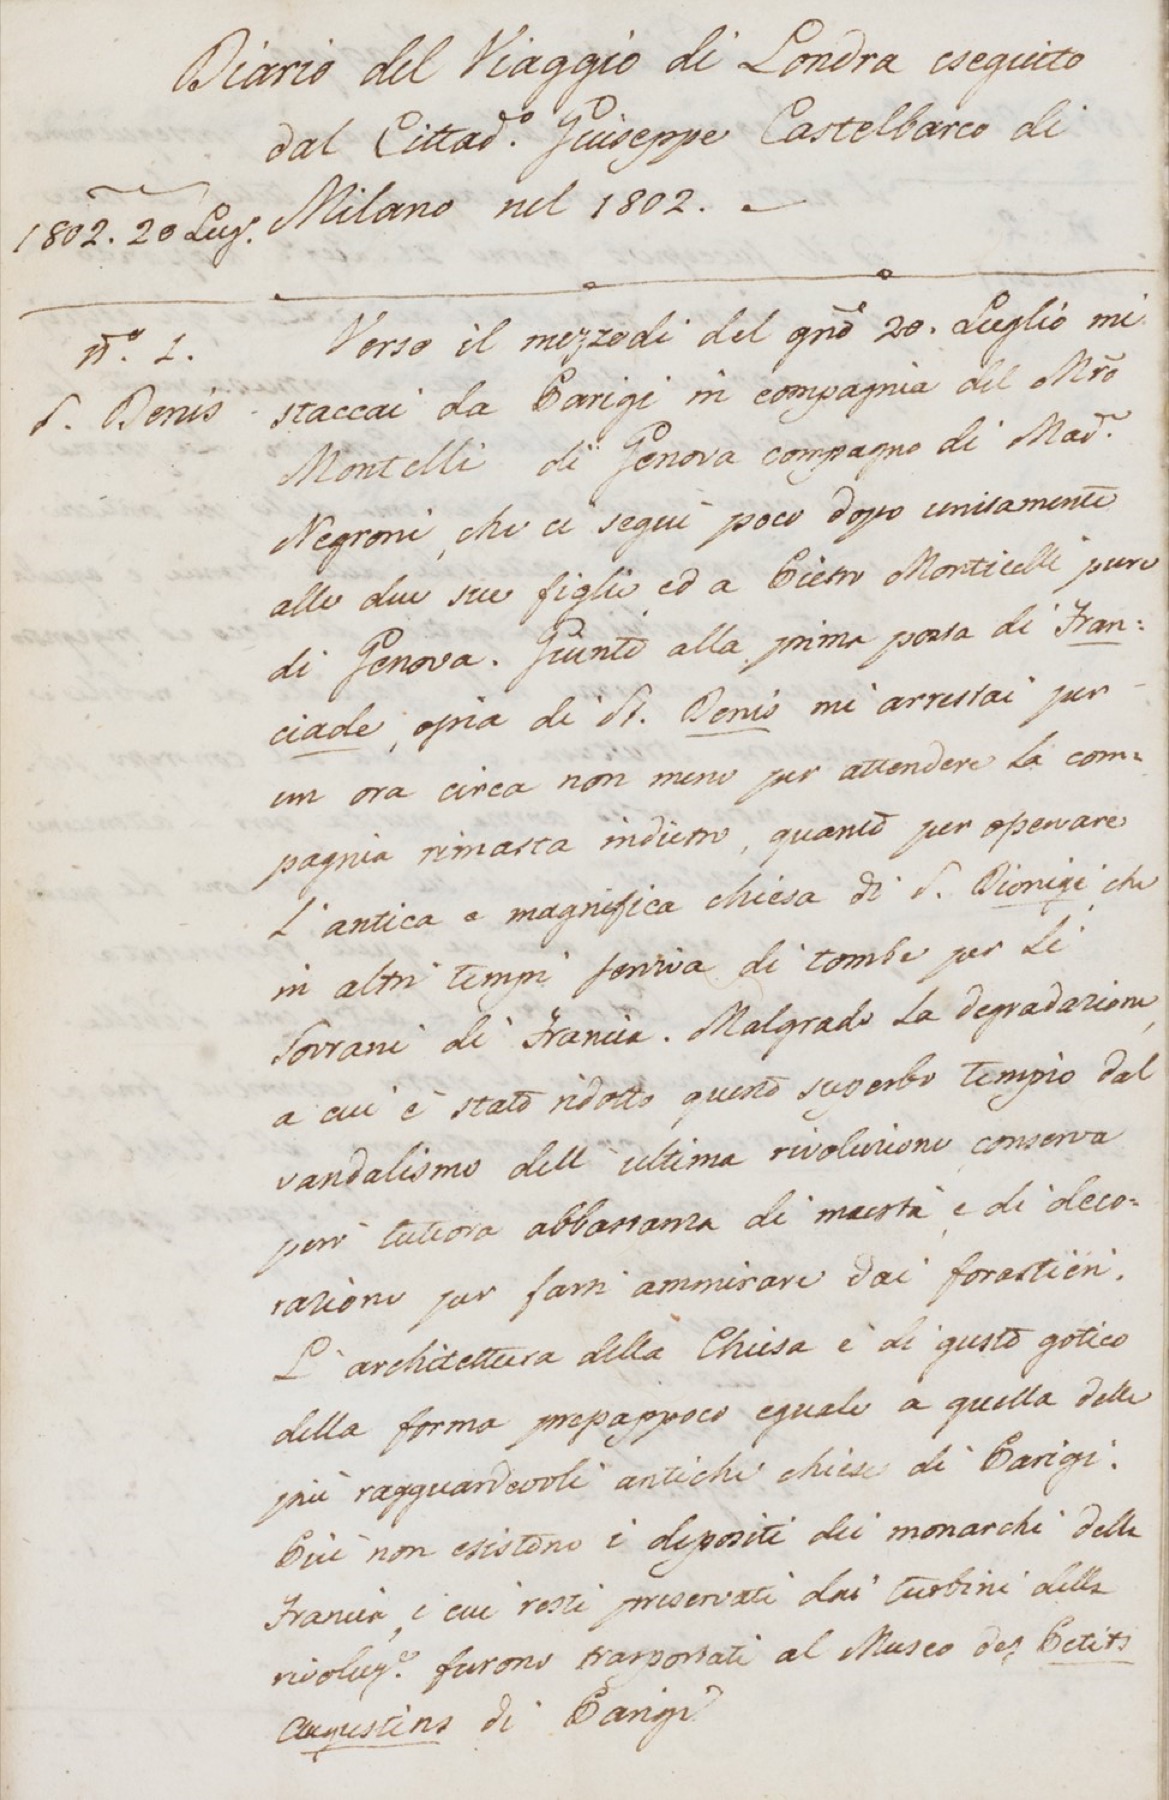 Diario del Viaggio di Londra eseguito
dal Cittad.º Giuseppe Castelbarco di
Milano nel 1802.
1802. 20 Lug.
nº. 1.
S. Denis
Verso il mezzodi del gno 20. Luglio mi
staccai da Parigi in compagnia del Mro
Montelli di Genova compagno di Mad.
Negroni, che ci seguì poco dopo unitamente
alle due sue figlie ed a Pietro Monticelli pure
di Genova. Giunto alla prima posta di Fran=
ciade, ossia di St. Denis mi arrestai per
un ora circa non meno per attendere la com=
pagnia rimasta indietro, quanto per osservare
l'antica e magnifica chiesa di S. Dionigi che
in altri tempi serviva di tomba per li
Sovrani di Francia. Malgrado la degradazione,
a cui è stato ridotto questo superbo tempio dal
vandalismo dell'ultima rivoluzione conserva
però tuttora abbastanza di maestà e di deco=
razione per farsi ammirare dai forestieri.
L'architettura della Chiesa è di gusto gotico
della forma presappoco eguale a quella delle
più ragguardevoli antiche chiese di Parigi.
Più non esistono i depositi dei monarchi della
Francia, i cui resti preservati dai turbini della
rivoluz.e furono trasportati al Museo des Petits
Augustins di Parigi